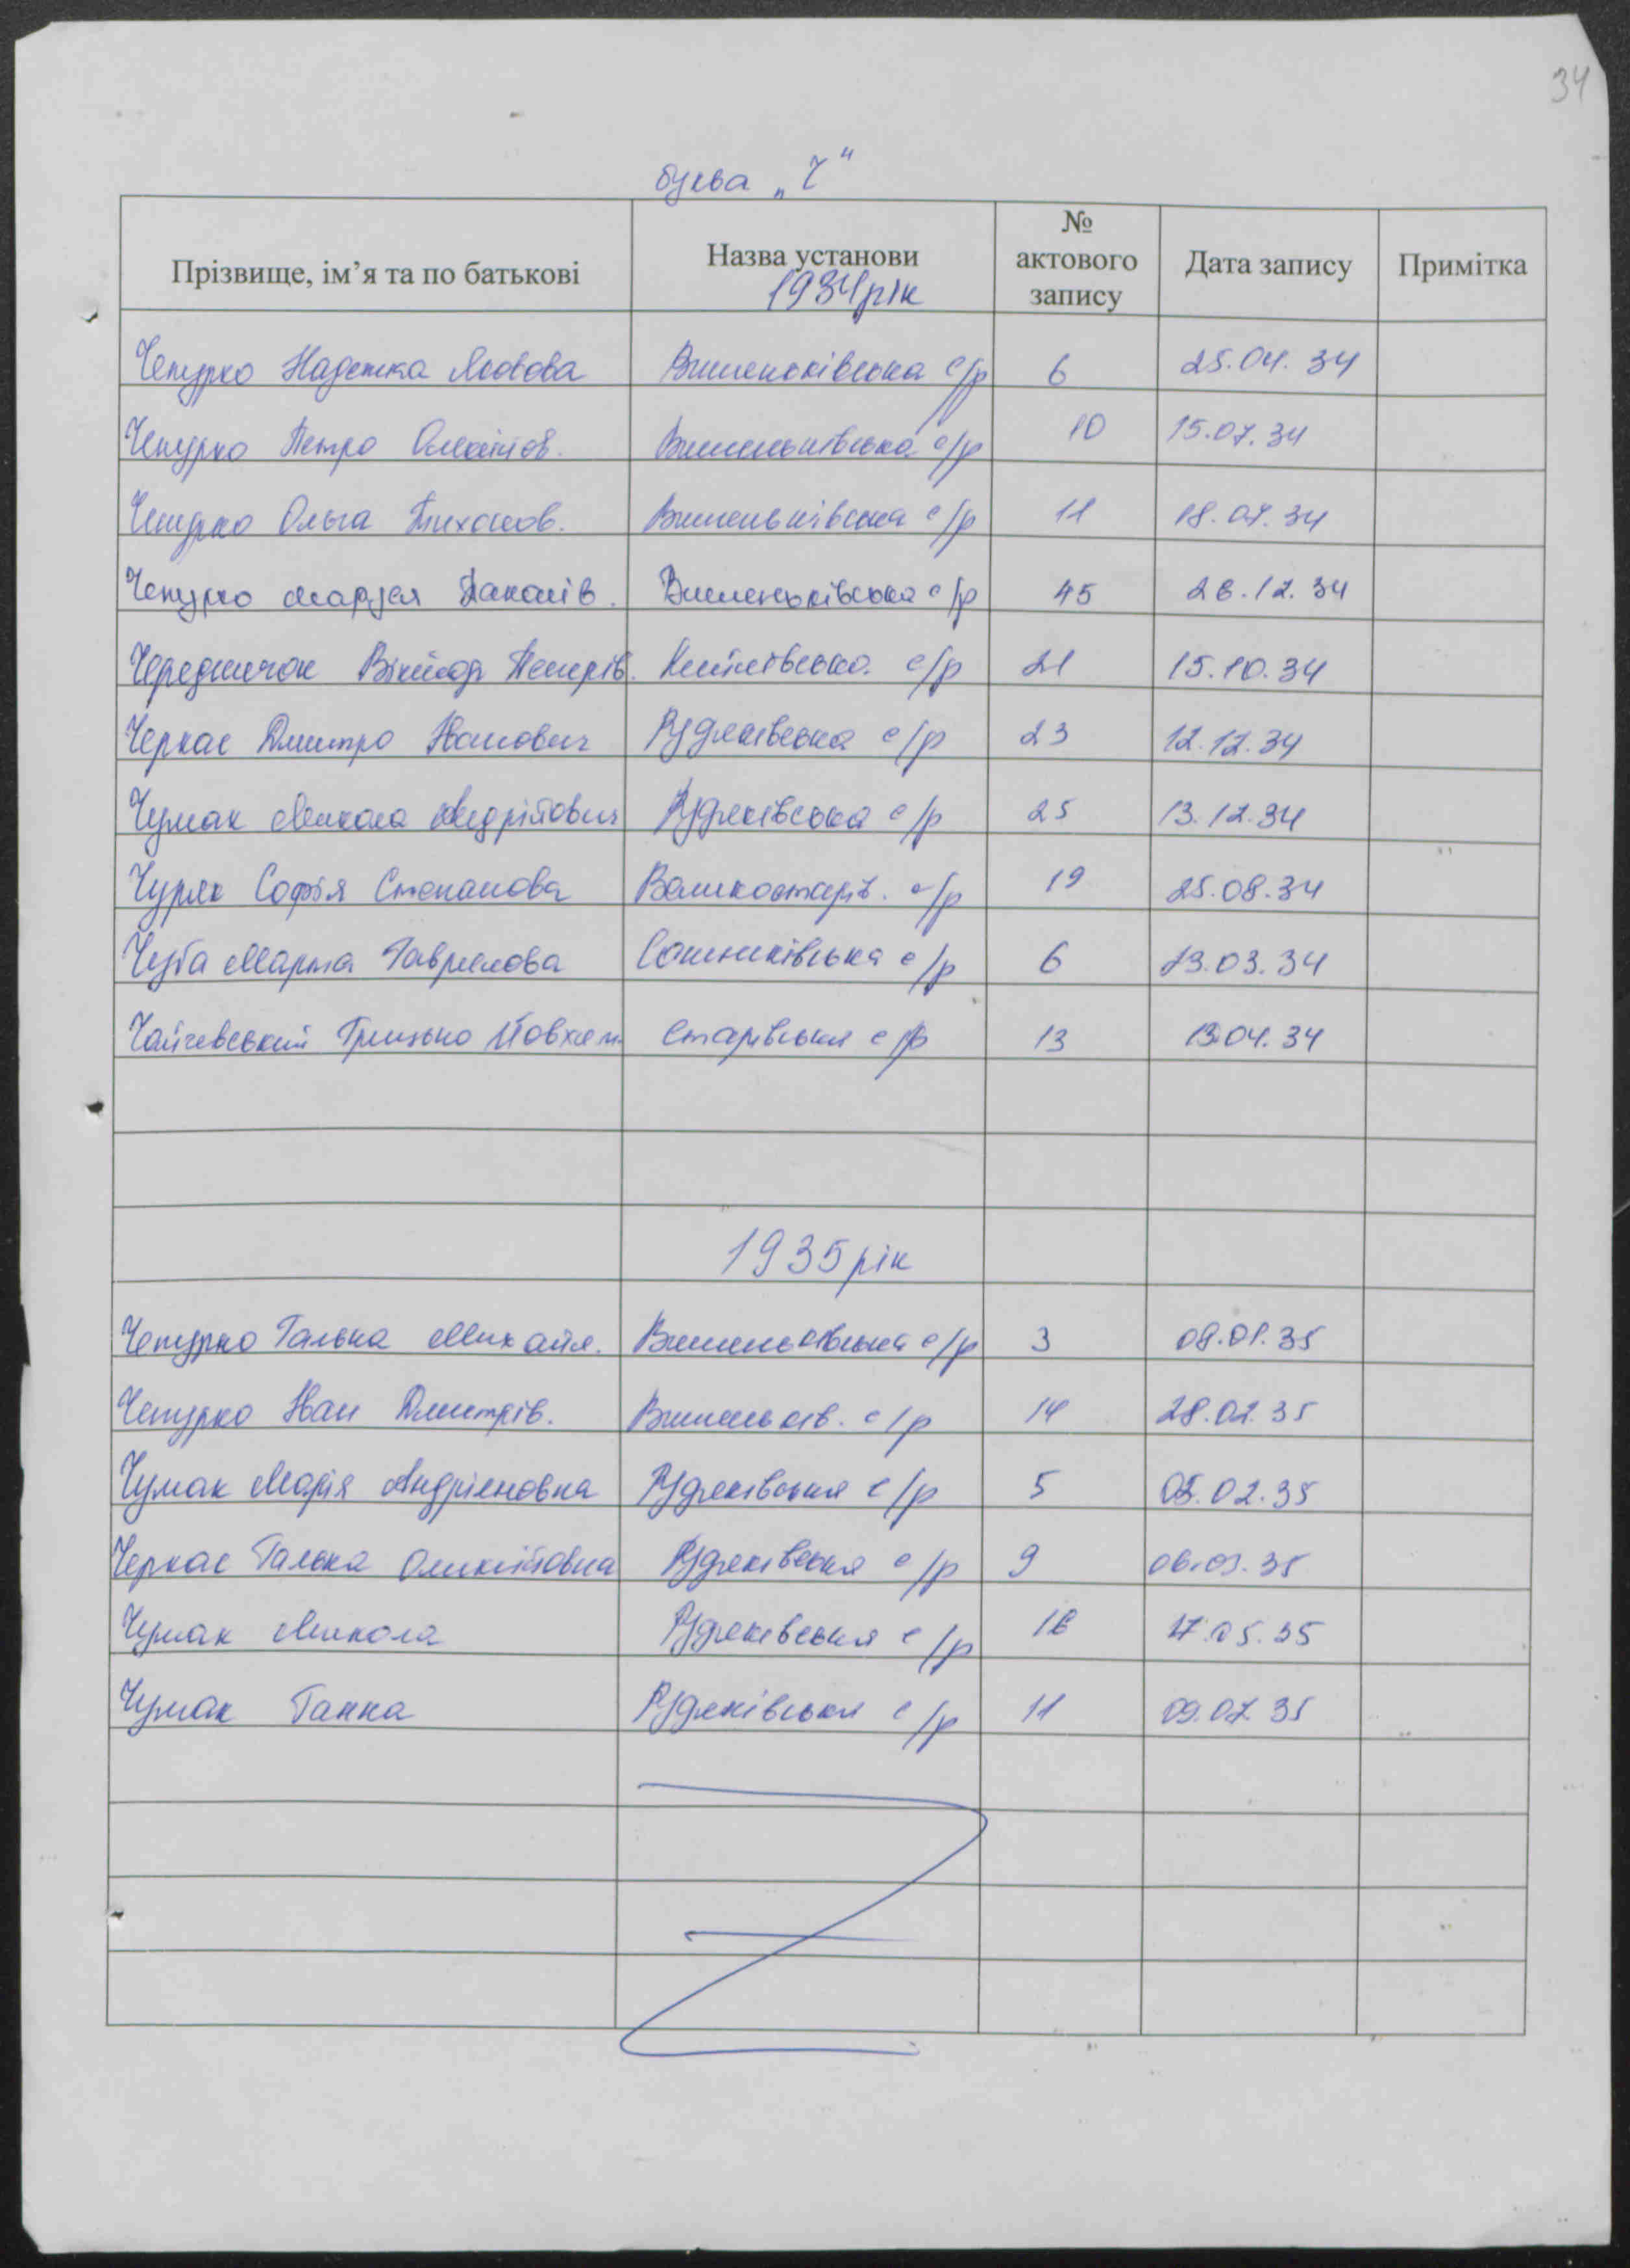 34
буква „Ч"
Прізвище, ім'я та по батькові Назва установи № актового запису Дата запису Примітка
1934 рік
Чепурко Надежка Львова Вишеньківська с/р 6 25.04.34
Чепурко Петро Вишеньківська с/р 10 15.07.34
Чепурко Ольга Тихонов. Вишеньківська с/р 11 18.07.34
Чепурко Вишеньківська с/р 45 26.12.34
Чередничок Віктор Петрів. с/р 21 15.10.34
Черкас Дмитро Іванович Рудяківська с/р 23 12.12.34
Чумак Микола Андрійович Рудяківська с/р 25 13.12.34
Чуряк Софія Степанова Великостарів. с/р 19 25.08.34
Чуба Марта Гаврилова Сошниківська с/р 6 13.03.34
Чайчевський Грицько Йовхим. Старівська с/р 13 13.04.34
1935 рік
Чепурко Галька Михайл. Вишеньківська с/р 3 09.01.35
Чепурко Іван Дмитрів. Вишеньків. с/р 14 28.02.35
Чумак Марія Андріяновна Рудяківська с/р 5 05.02.35
Черкас Галька Оликсійовна Рудяківська с/р 9 06.03.35
Чумак Микола Рудяківська с/р 16 17.05.35
Чумак Ганна Рудяківська с/р 11 09.07.35